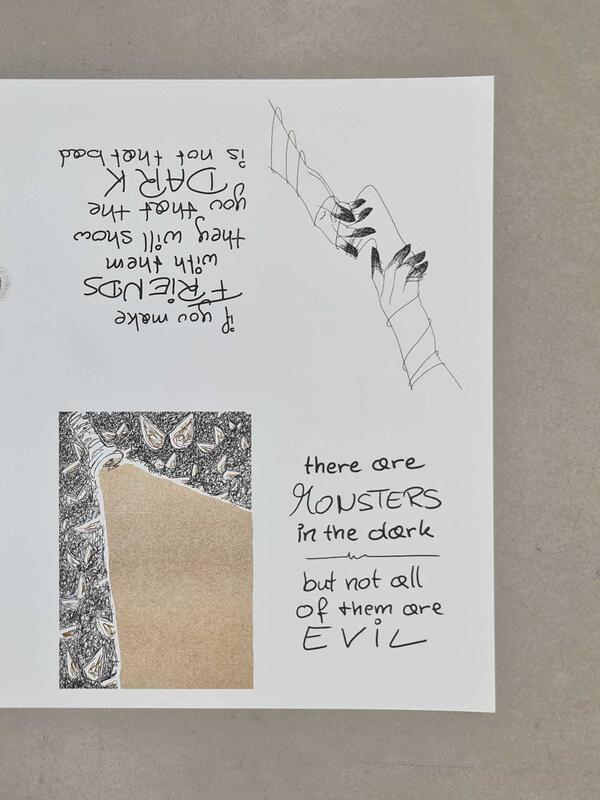 there are
MONSTERS
in the dark
but not all
of them are
EVIL
if you make
FRiENDS
with them
they will show
you that the
DARK
is not that bad